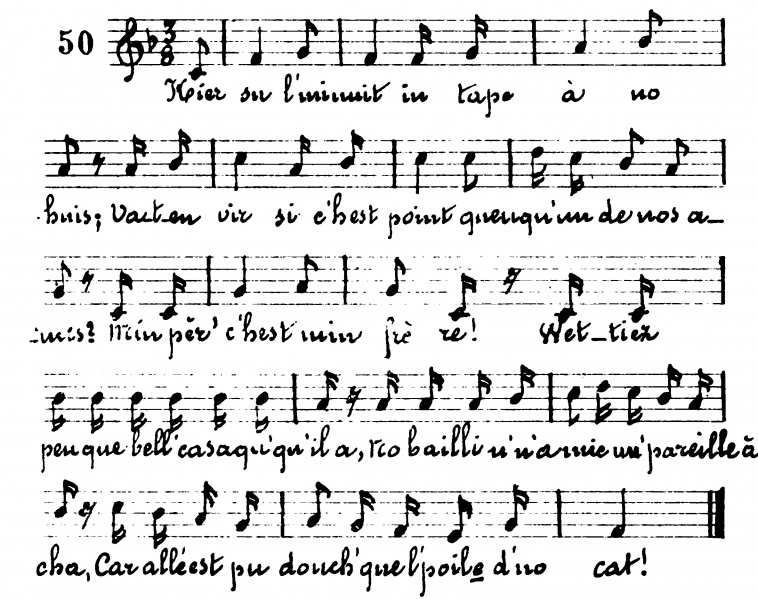 50
Hier su l'minuit in tape à no
huis; Vact-en vir si c'hest point queuqu'un de nos a-
mis? Min pèr' c'hest min frè re! Wet-tiez
peu que bell' casaqu' qu'il a, No bailli n'n'a mie un' pareille à
cha, Car alle est pu douch' que l'poil e d'no cat!